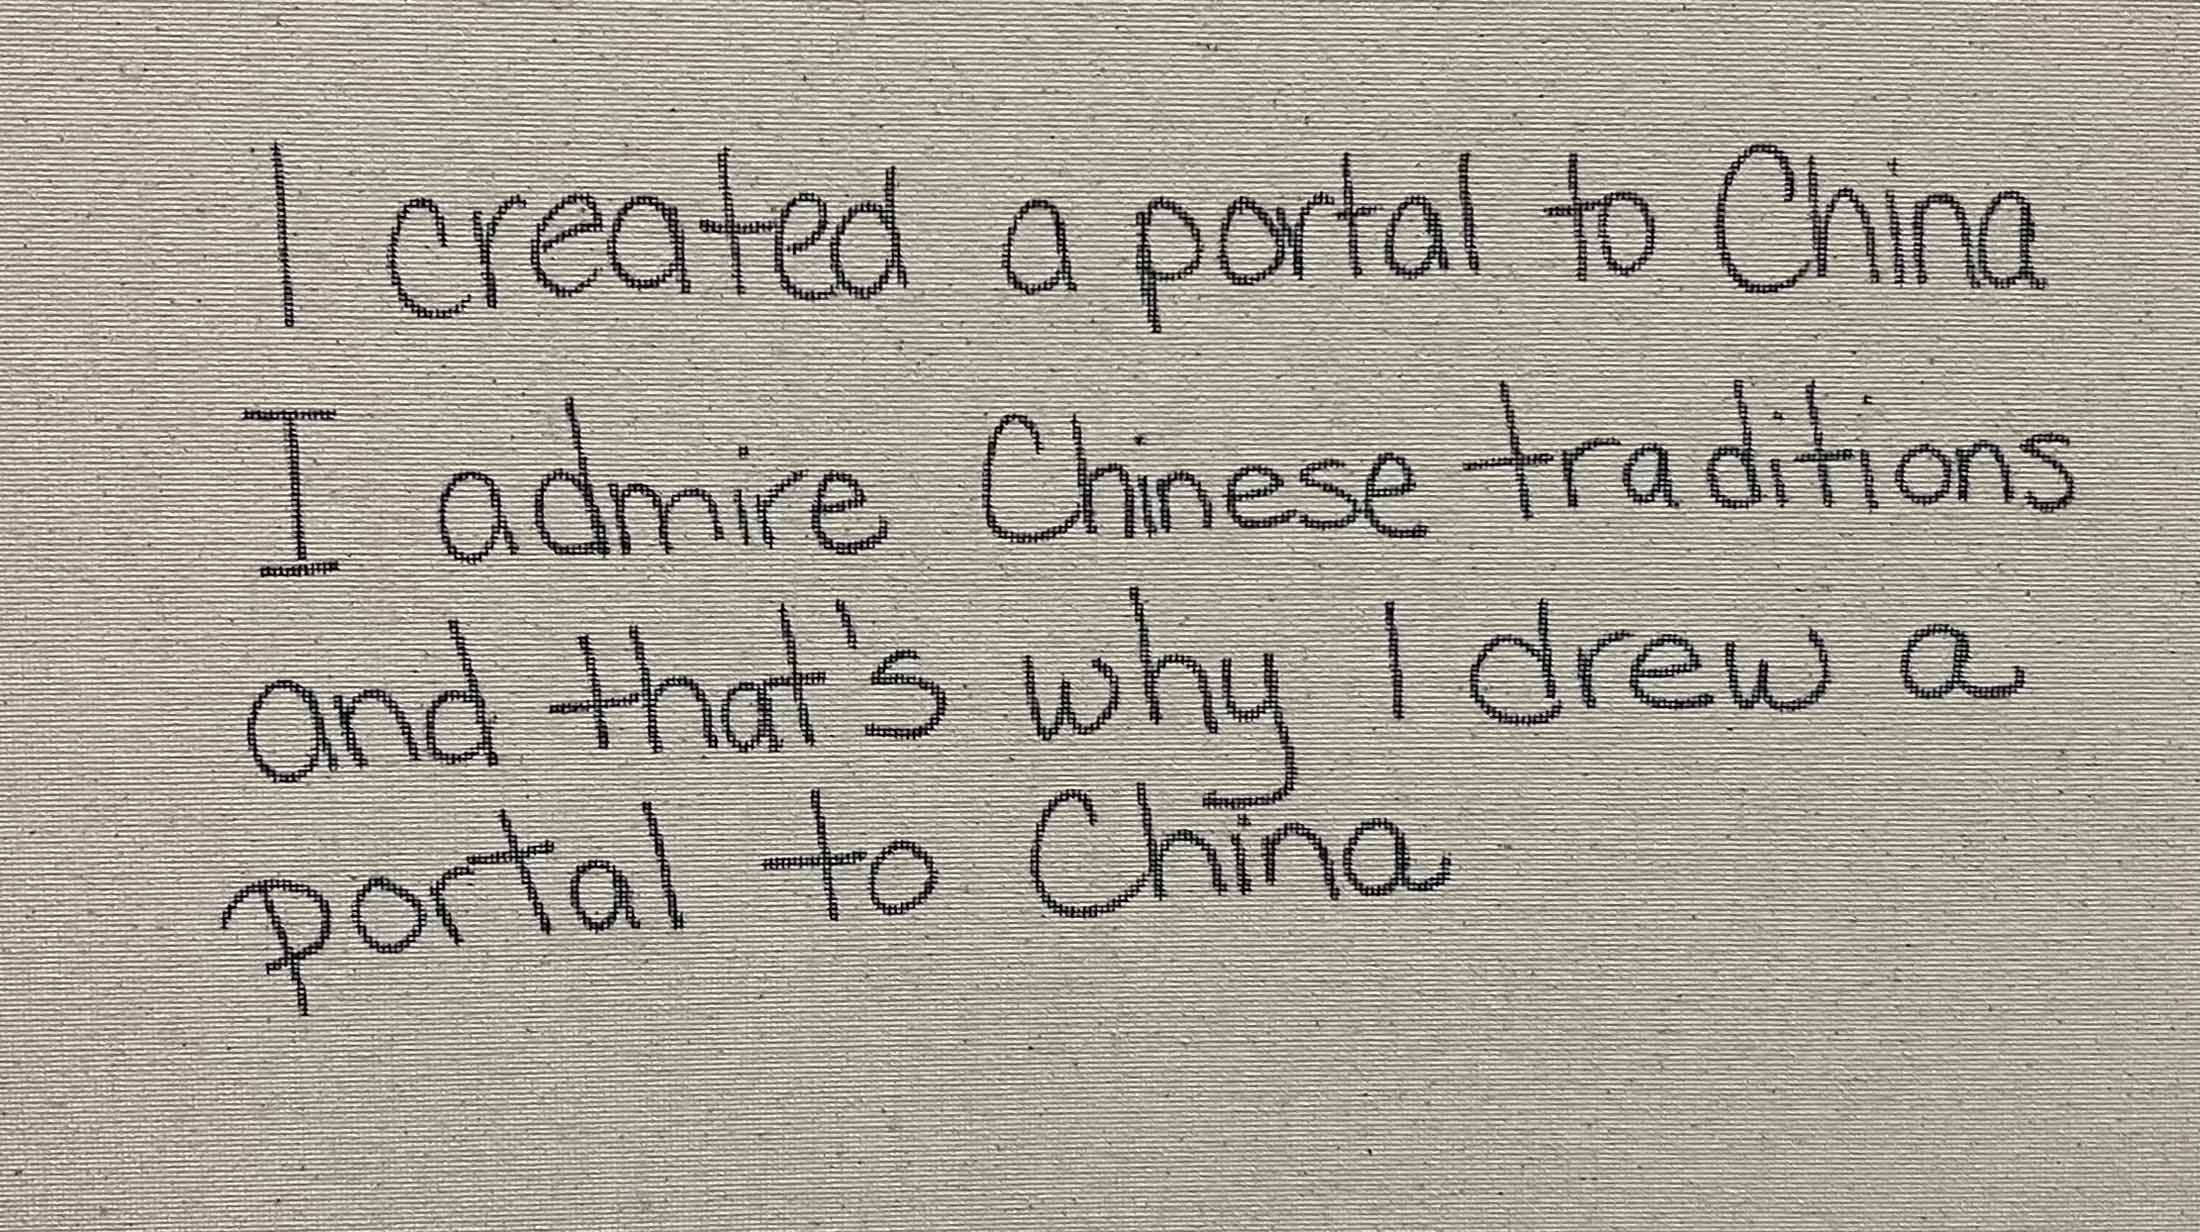 I created a portal to China
I admire Chinese traditions
and that's why I drew a
portal to China